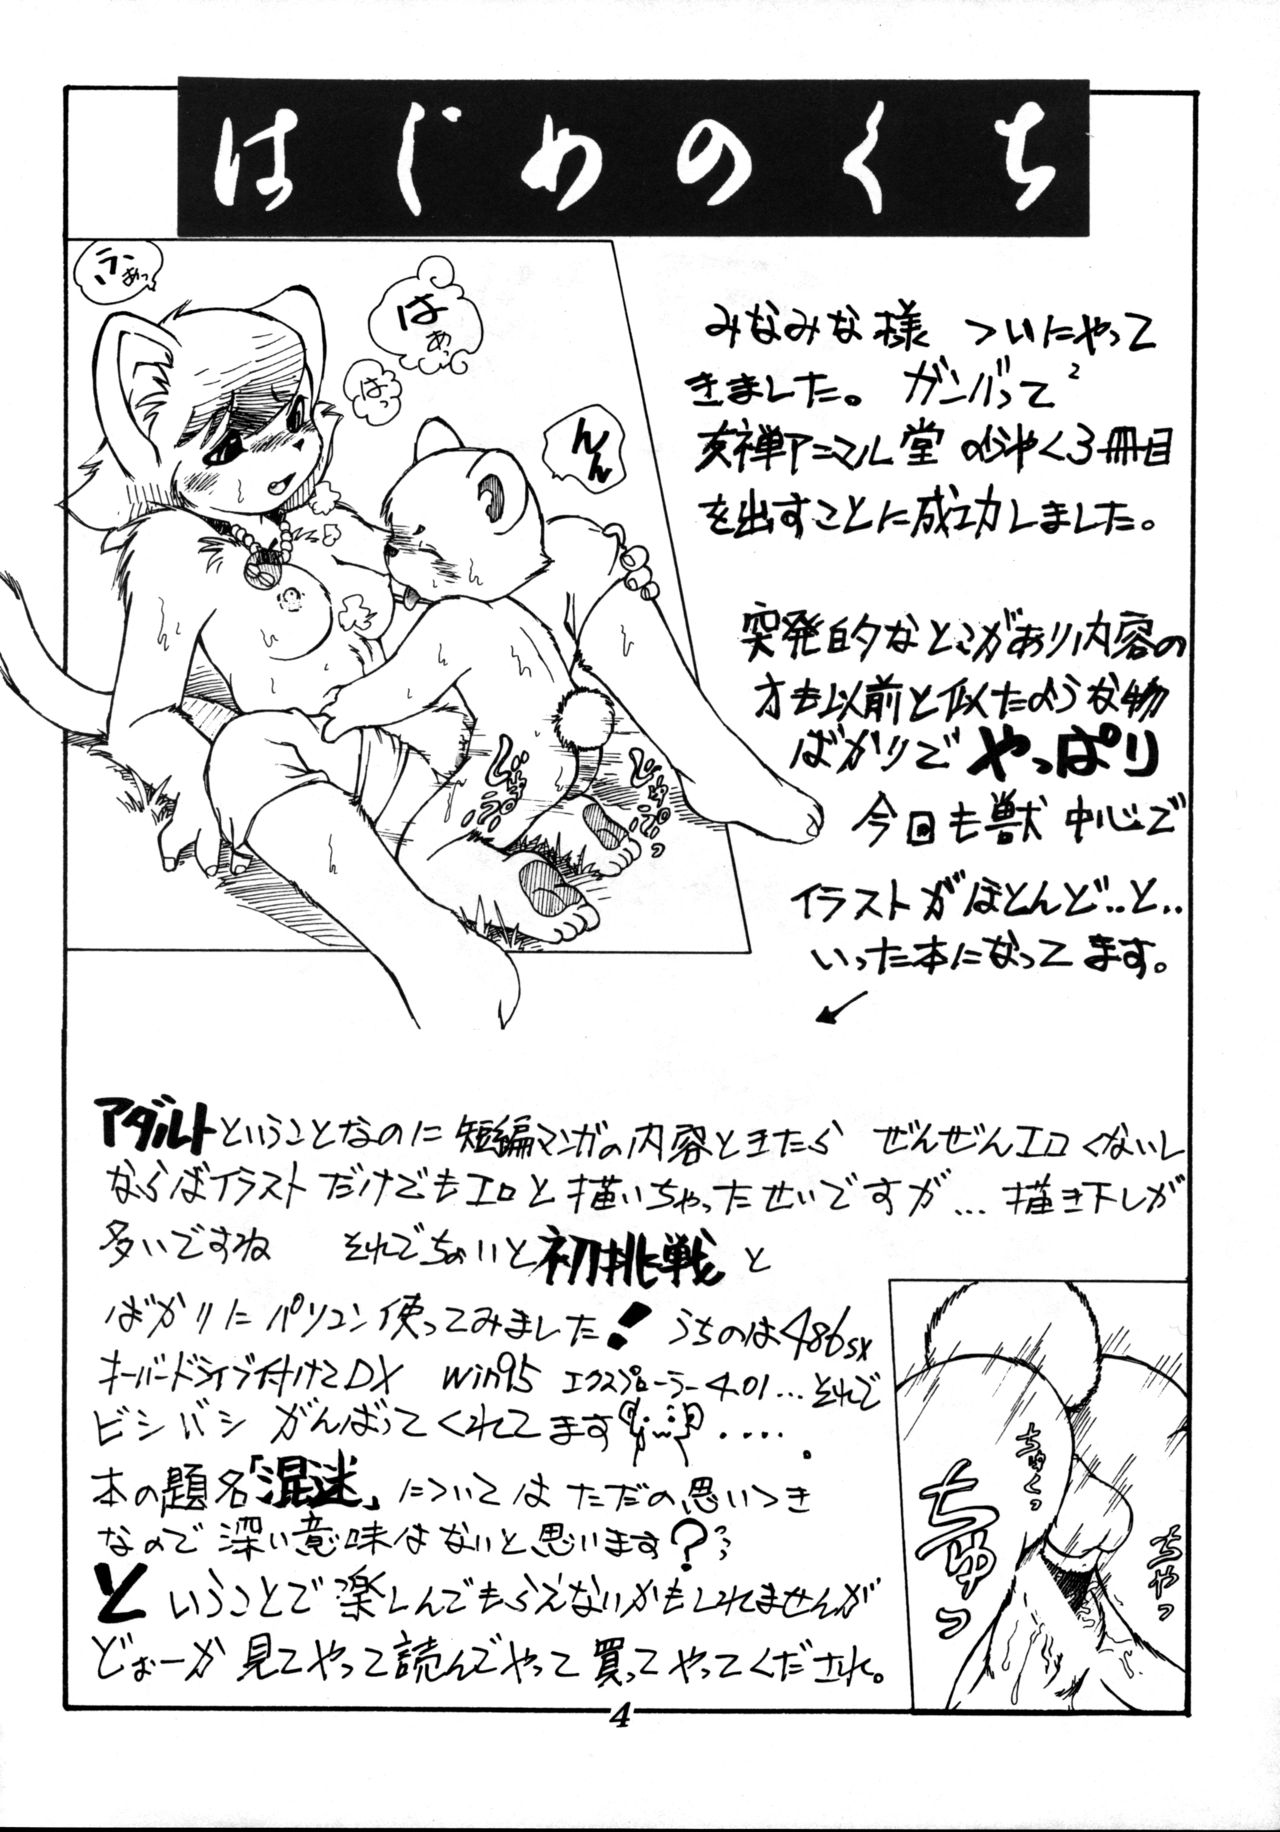 はじめのくち
みなみな様 ついにやって
きました。 ガンバって2
女禅アニマル堂 ようやく3冊目
を出すことに成功しました。
突発的なとこがあり内容の
方も以前と似たような物
ばかりで やっぱり
今回も獣 中心で
イラストがほとんど‥と‥
いった本になってます。
アダルトということなのに 短編マンガの内容ときたら ぜんぜんエロくないし
ならばイラストだけでもエロと描いちゃったせいですが… 描き下しが
多いですね それでちょいと 初挑戦 と
ばかりにパソコン使ってみました! うちのは486sx
オーバードライブ付けてDX win95 エクスプローラー4.01…それで
ビシバシ がんばってくれてます ‥‥。
本の題名「混迷」については ただの思いつき
なので深い意味はないと思います?
ということで楽しんでもらえないかもしれませんが
どぉーか 見てやって読んでやって買ってやってください。
はぁっ
はっ
んんっ
ちゅっ
ちゅくっ
ちゃっ
4